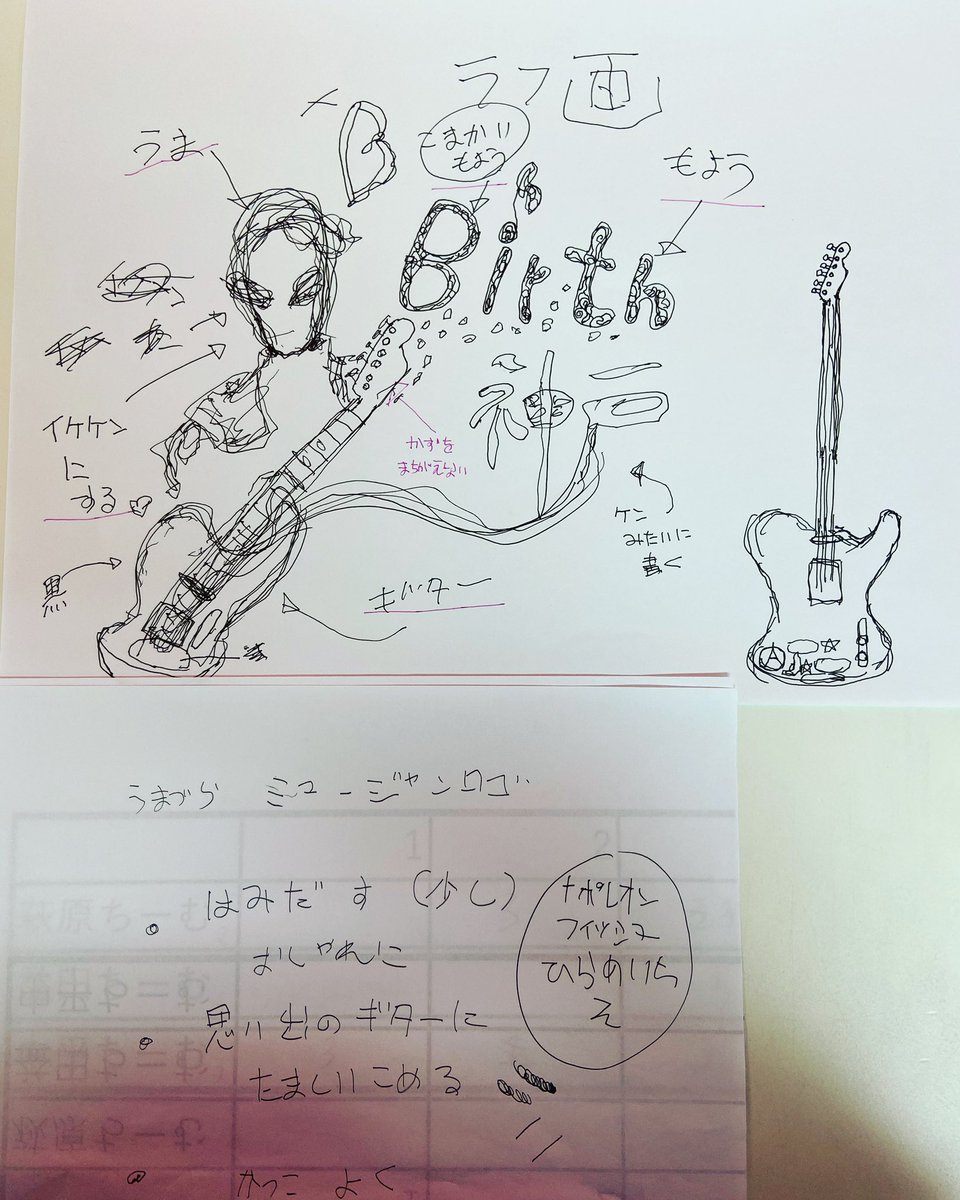 ラフ画
B
うま
こまかい
もよう
もよう
Birth
神戸
イケケン
に
する
かずを
まちがえない
ケン
みたいに
書く
黒
ギター
うまづら ミュージャンロゴ
・はみだす(少し)
おしゃれに
・思い出のギターに
たましいこめる
・かっこよく
ナポレオン
フィッシュ
ひらめいた
ぞ
1
2